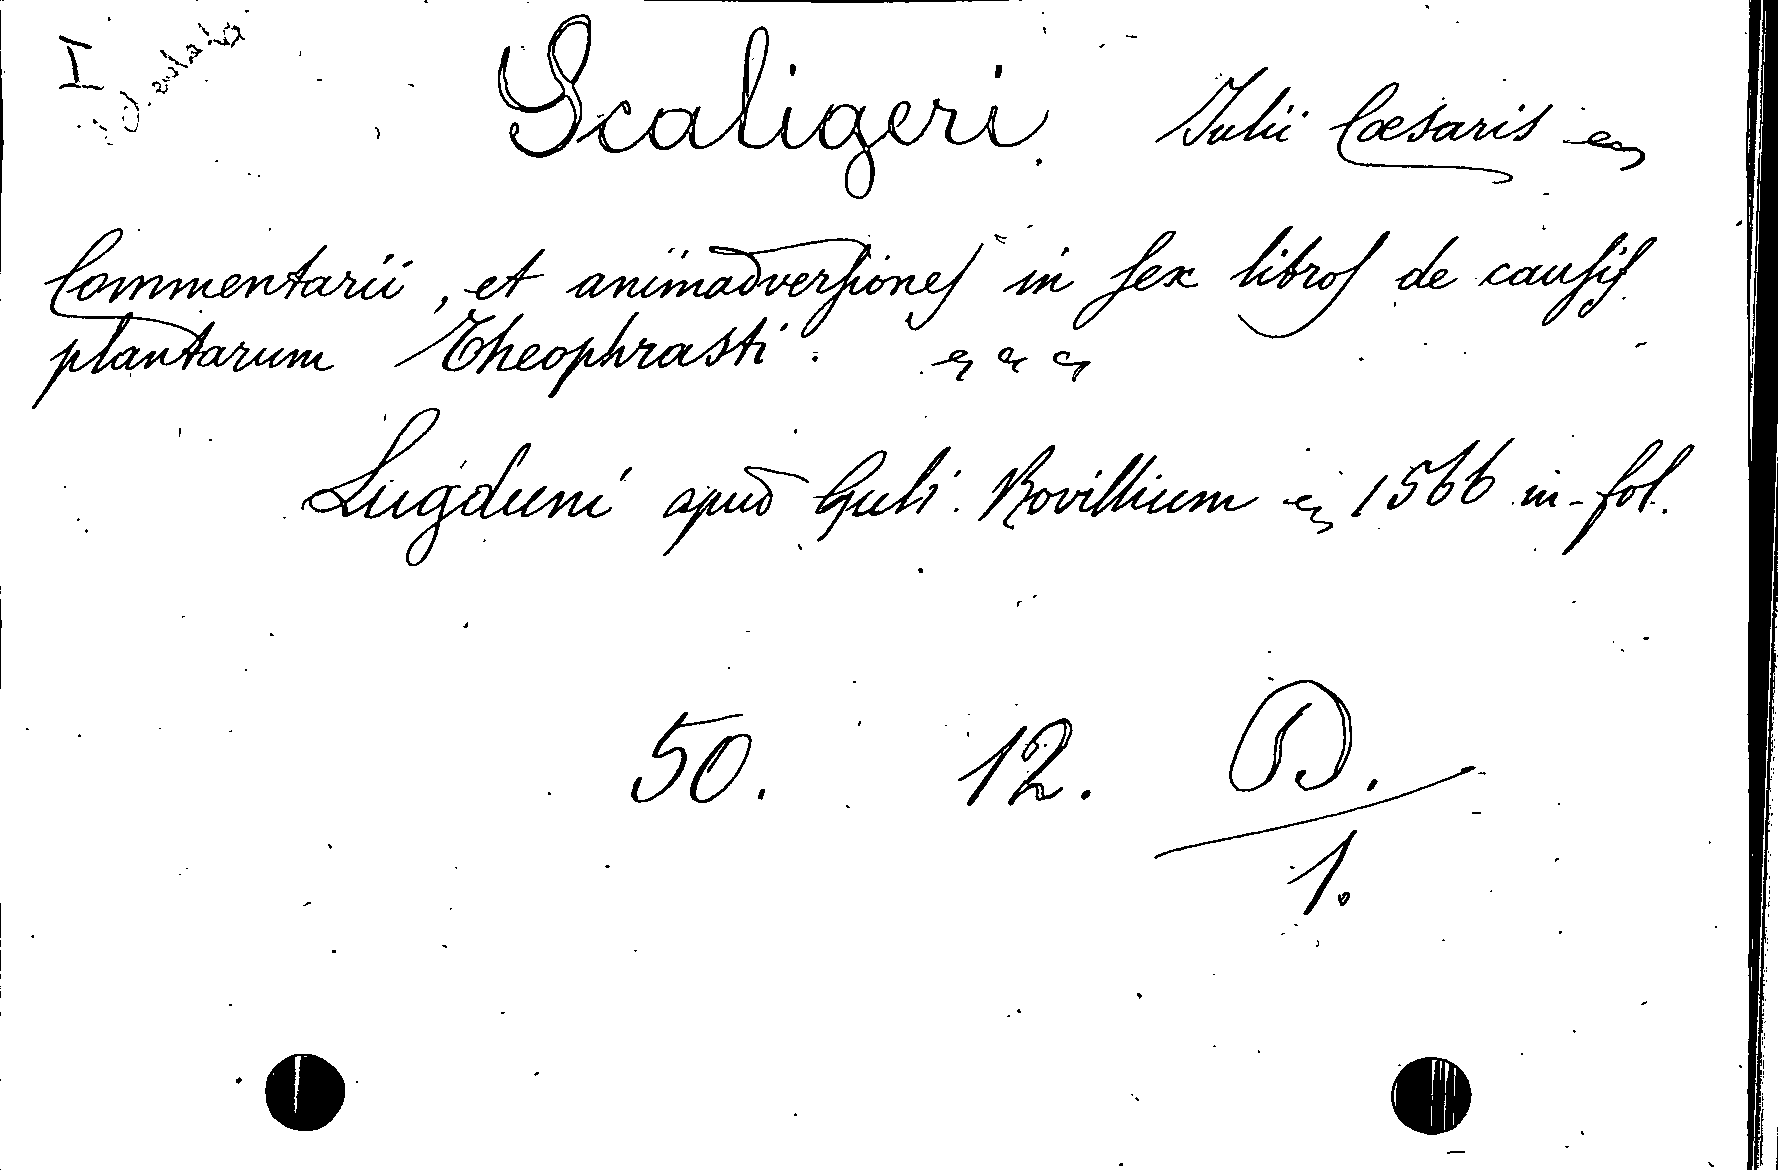 I
Scaligeri Julii Cæsaris
Commentarii, et animadversiones in sex libros de causis
plantarum Theophrasti.
Lugduni apud Guli. Rovillium 1566 in-fol.
50. 12. D.
1.